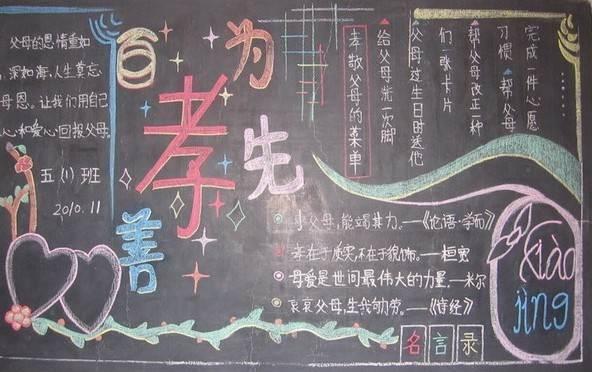 父母的恩情重如
深如海,人生莫忘
母恩。让我们用自己
心和爱心回报父母。
五(1)班
2010.11
百善
孝
为先
孝敬父母的菜单
给父母洗一次脚
父母过生日时送他
们一张卡片
帮父母改正一种
习惯 帮父母
完成一件心愿
事父母,能竭其力。—《论语·学而》
孝在于质实,不在于貌饰。—桓宽
母爱是世间最伟大的力量—米尔
哀哀父母,生我劬劳。—《诗经》
名言录
xiào
jìng